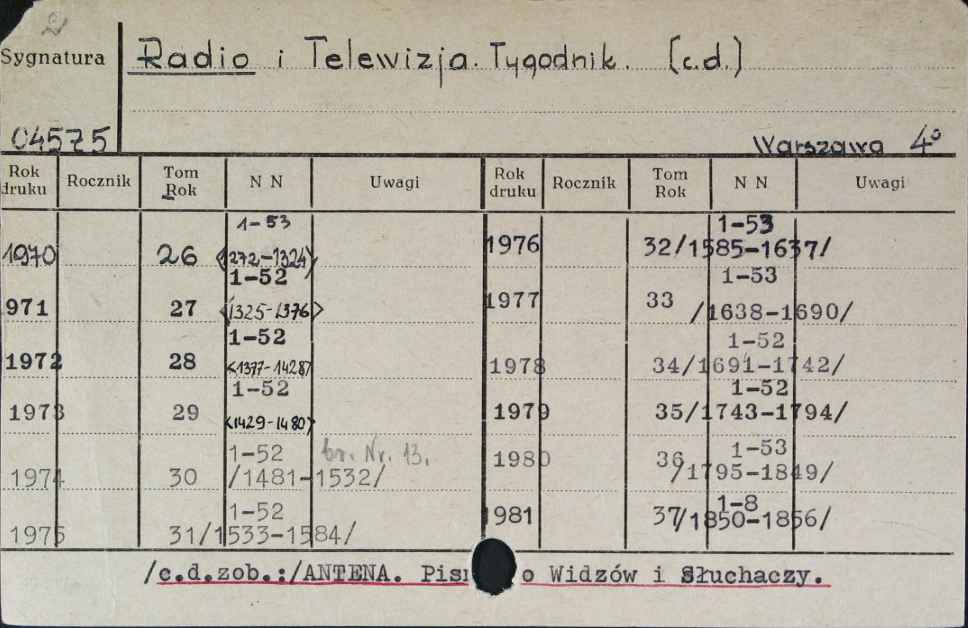 Sygnatura
Radio i Telewizja. Tygodnik. (c.d.)
04575
Warszawa 4°
Rok druku Rocznik Tom Rok N N Uwagi Rok druku Rocznik Tom Rok N N Uwagi
1970 26 1-53 <1272-1324> 1976 32 1-53 /1585-1637/
971 27 1-52 <1325-1376> 1977 33 1-53 /1638-1690/
1972 28 1-52 <1377-1428> 1978 34 1-52 /1691-1742/
1973 29 1-52 <1429-1480> 1979 35 1-52 /1743-1794/
1974 30 1-52 /1481-1532/ br. Nr. 13. 1980 36 1-53 /1795-1849/
1975 31 1-52 /1533-1584/ 1981 37 1-8 /1850-1856/
/c.d.zob.:/ANTENA. Pis o Widzów i Słuchaczy.